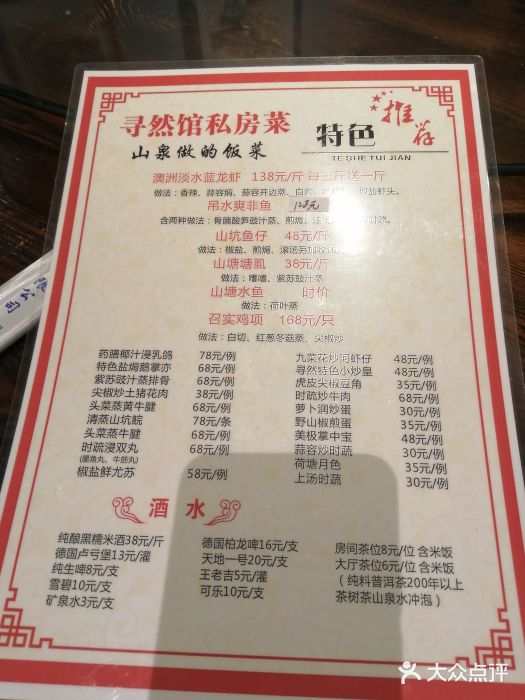 寻然馆私房菜
山泉做的饭菜
特色
推荐
TE SHE TUI JIAN
澳洲淡水蓝龙虾 138元/斤 每三斤送一斤
做法：香辣、蒜蓉焗、蒜蓉开边蒸、白灼、椒盐虾头。
吊水爽非鱼 128元
含两种做法：骨腩酸笋豉汁蒸、煎焗、滚汤
山坑鱼仔 48元/斤
做法：椒盐、煎焗、滚汤另加收
山塘塘虱 38元/斤
做法：嗜嗜、紫苏豉汁蒸
山塘水鱼 时价
做法：荷叶蒸
召实鸡项 168元/只
做法：白切、红葱冬菇蒸、尖椒炒
药膳椰汁浸乳鸽 78元/例
特色盐焗鹅掌亦 68元/例
紫苏豉汁蒸排骨 68元/例
尖椒炒土猪花肉 38元/例
头菜蒸黄牛腱 68元/例
清蒸山坑鲩 78元/条
头菜蒸牛腱 68元/例
时疏浸双丸 68元/例
(墨鱼丸、牛筋丸)
椒盐鲜尤苏 58元/例
九菜花炒河虾仔 48元/例
寻然特色小炒皇 48元/例
虎皮尖椒豆角 35元/例
时疏炒牛肉 68元/例
萝卜润炒蛋 30元/例
野山椒煎蛋 35元/例
美极掌中宝 48元/例
蒜蓉炒时蔬 30元/例
荷塘月色 35元/例
上汤时蔬 30元/例
酒水
纯酿黑糯米酒38元/斤
德国卢亏堡13元/灌
纯生啤8元/支
雪碧10元/支
矿泉水3元/支
德国柏龙啤16元/支
天地一号20元/支
王老吉5元/灌
可乐10元/支
房间茶位8元/位 含米饭
大厅茶位6元/位 含米饭
（纯料普洱茶200年以上
茶树茶山泉水冲泡）
大众点评